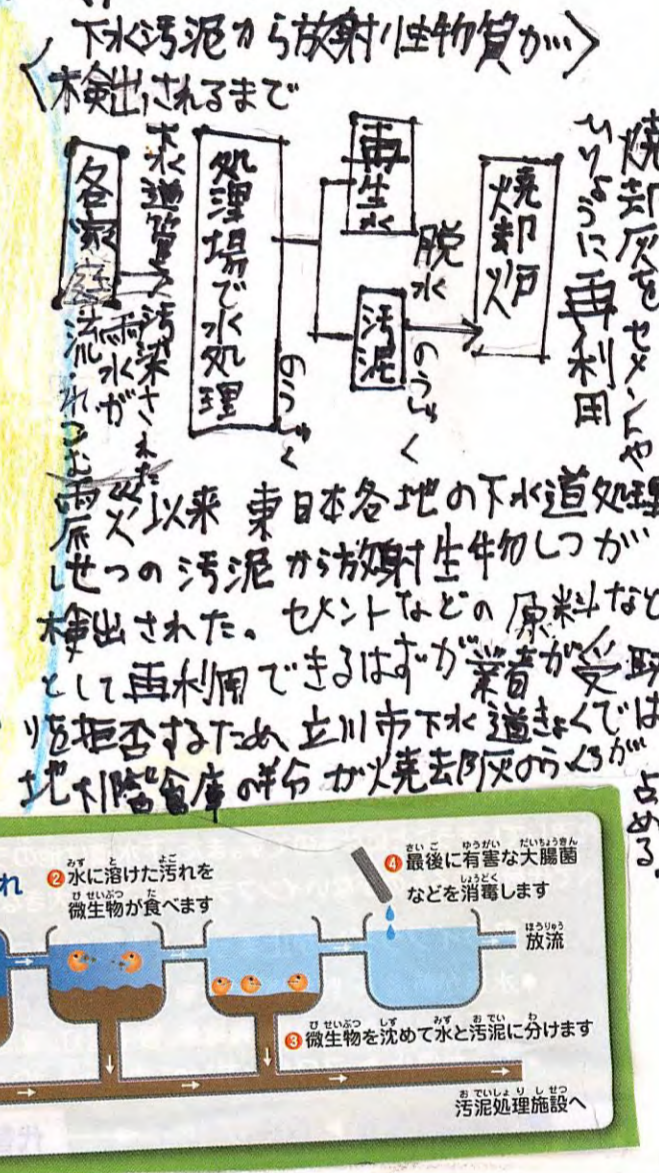 下水汚泥から放射性物質が…
検出されるまで
各家庭
下水道管に汚染された
雨水が
流れこむ
処理場で水処理
のうしゅく
再生水
汚泥
脱水
のうしゅく
焼却炉
焼却灰をセメントや
ひりょうに再利用
以来 東日本各地の下水道処理
せつの汚泥から放射生物しつが
検出された。セメントなどの原料など
として再利用できるはずが業者が受取
りを拒否するため 立川市下水道きょくでは
地下階倉庫の半分が焼却灰のふくろが
占める。
れ
❷水に溶けた汚れを
微生物が食べます
❹最後に有害な大腸菌
などを消毒します
放流
❸微生物を沈めて水と汚泥に分けます
汚泥処理施設へ